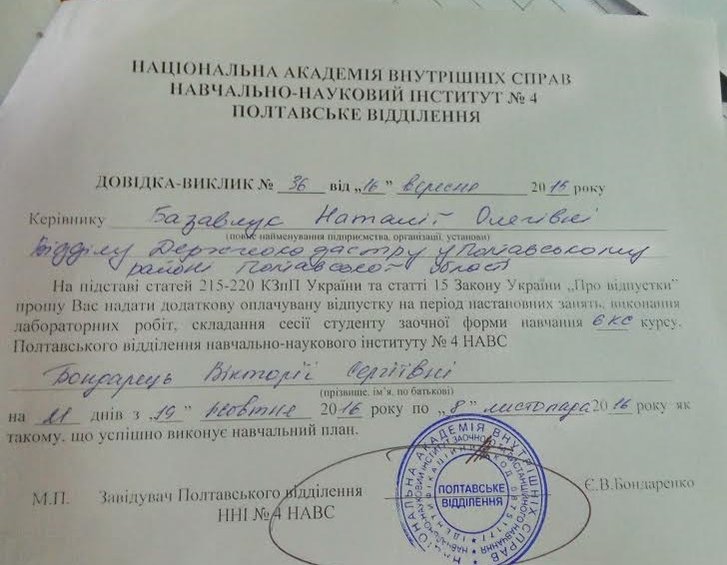 НАЦІОНАЛЬНА АКАДЕМІЯ ВНУТРІШНІХ СПРАВ
НАВЧАЛЬНО-НАУКОВИЙ ІНСТИТУТ № 4
ПОЛТАВСЬКЕ ВІДДІЛЕННЯ
ДОВІДКА-ВИКЛИК № 36 від „16” вересня 2016 року
Керівнику Базавлук Наталії Олегівні
(повне найменування підприємства, організації, установи)
Відділу Держгеокадастру у Полтавському
районі Полтавської області
На підставі статей 215-220 КЗпП України та статті 15 Закону України „Про відпустки”
прошу Вас надати додаткову оплачувану відпустку на період настановних занять, виконання
лабораторних робіт, складання сесії студенту заочної форми навчання 6 кс курсу.
Полтавського відділення навчально-наукового інституту № 4 НАВС
Бондарець Вікторії Сергіївні
(прізвище, ім’я, по батькові)
на 21 днів з „19” жовтня 2016 року по „8” листопада 2016 року як
такому, що успішно виконує навчальний план.
М.П. Завідувач Полтавського відділення Є.В.Бондаренко
ННІ № 4 НАВС
НАЦІОНАЛЬНА АКАДЕМІЯ ВНУТРІШНІХ СПРАВ
ПОЛТАВСЬКЕ
ВІДДІЛЕННЯ